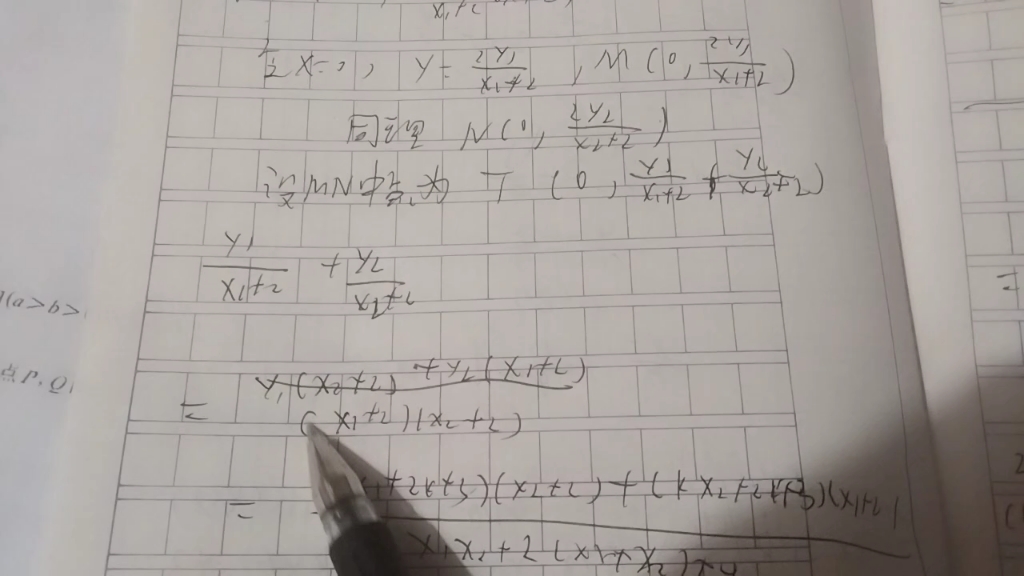 x₁+2
x=0, y=\frac{2y₁}{x₁+2}, M(0, \frac{2y₁}{x₁+2})
同理 N(0, \frac{2y₂}{x₂+2})
MN中点 (0, \frac{y₁}{x₁+2}+\frac{y₂}{x₂+2})
\frac{y₁}{x₁+2}+\frac{y₂}{x₂+2}
(a>b>
=\frac{y₁(x₂+2)+y₂(x₁+2)}{(x₁+2)(x₂+2)}
点P,Q
=\frac{+2k+3)(x₂+2)+(kx₂+2k+3)(x₁+2)}{x₁x₂+2(x₁+x₂)+4}